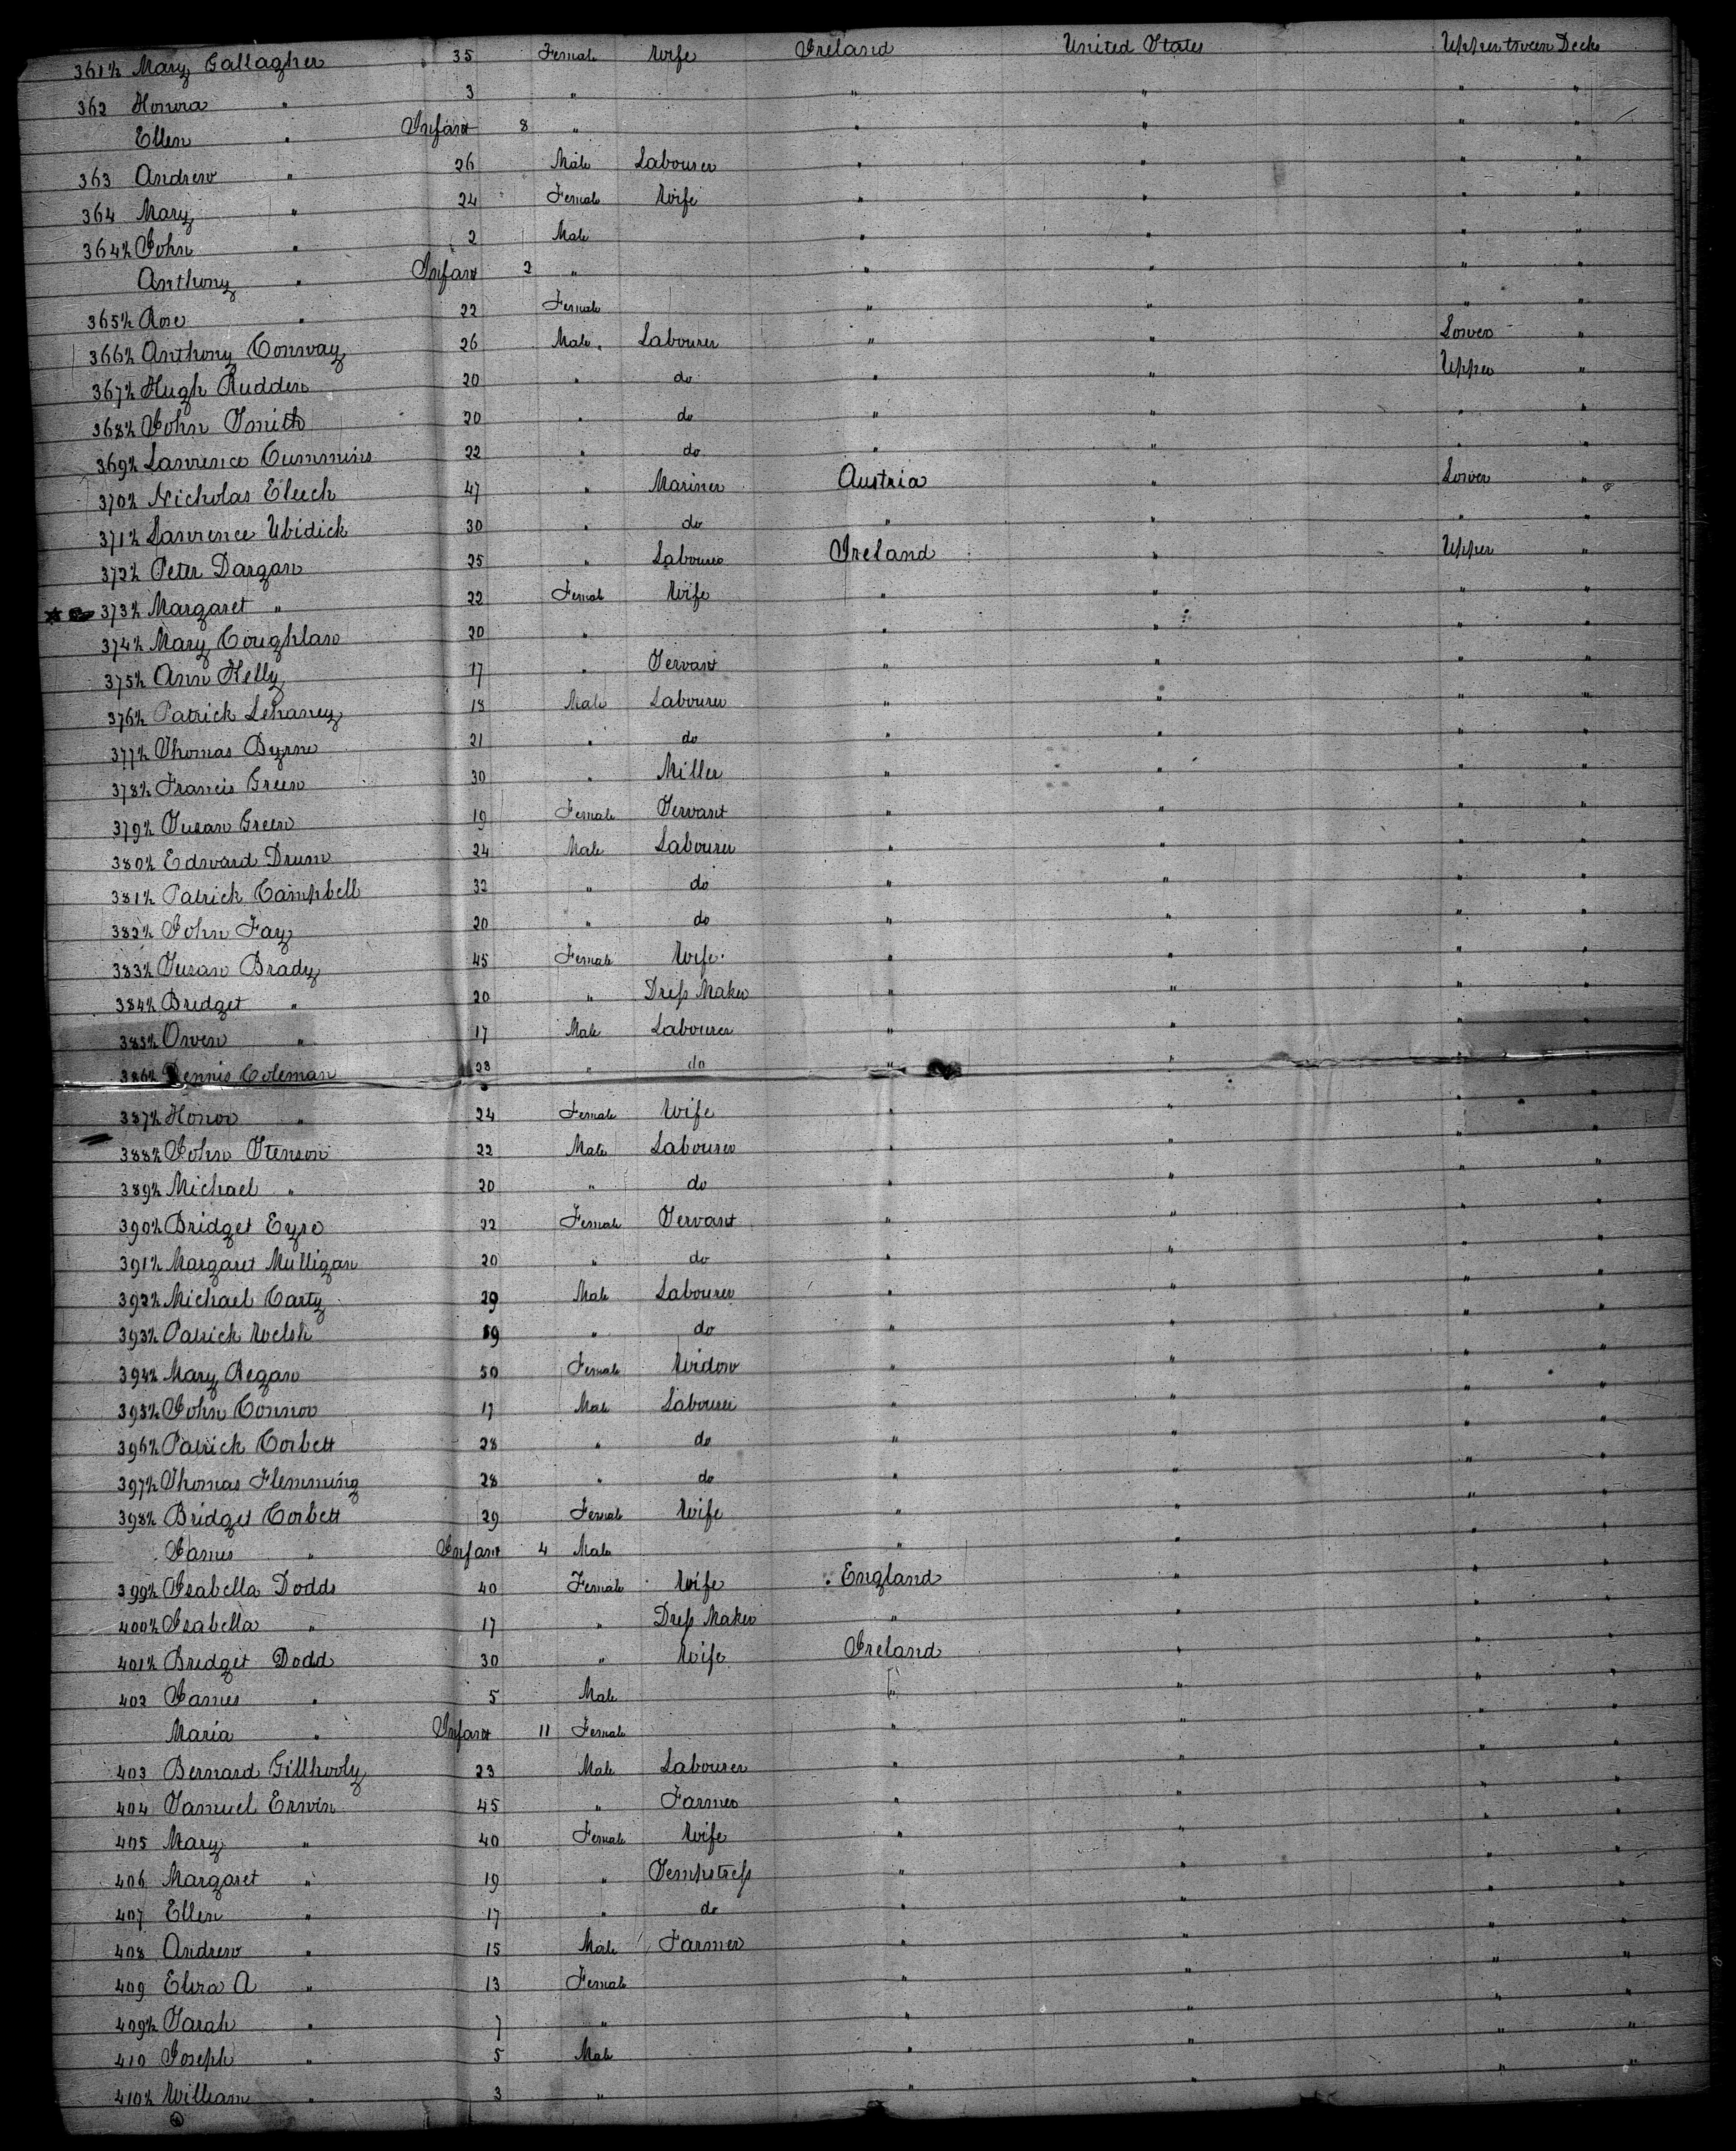 361½ Mary Gallagher 35 Female Wife Ireland United States Upper tween Decks
362 Honora " 3 " " " " "
Ellen " Infant 8 " " " " "
363 Andrew " 26 Male Labourer " " " "
364 Mary " 24 Female Wife " " " "
364½ John " 2 Male " " " "
Anthony " Infant 2 " " " " "
365½ Rose " 22 Female " " " "
366½ Anthony Conway 26 Male Labourer " " Lower "
367½ Hugh Rudden 20 " do " " Upper "
368½ John Smith 20 " do " " " "
369½ Lawrence Cummins 22 " do " " " "
370½ Nicholas Eleech 47 " Mariner Austria " Lower "
371½ Lawrence Ubidick 30 " do " " " "
372½ Peter Dargan 25 " Labourer Ireland " Upper "
373½ Margaret " 22 Female Wife " " " "
374½ Mary Coughlan 20 " " " " "
375½ Ann Kelly 17 " Servant " " " "
376½ Patrick Lehaney 18 Male Labourer " " " "
377½ Thomas Byrne 21 " do " " " "
378½ Francis Green 30 " Miller " " " "
379½ Susan Green 19 Female Servant " " " "
380½ Edward Drum 24 Male Labourer " " " "
381½ Patrick Campbell 32 " do " " " "
382½ John Fay 20 " do " " " "
383½ Susan Brady 45 Female Wife " " " "
384½ Bridget " 20 " Dress Maker " " " "
385½ Owen " 17 Male Labourer " " " "
386½ Dennis Coleman 28 " do " " " "
387½ Honor " 24 Female Wife " " " "
388½ John Stenson 22 Male Labourer " " " "
389½ Michael " 20 " do " " " "
390½ Bridget Eyre 22 Female Servant " " " "
391½ Margaret Mulligan 20 " do " " " "
392½ Michael Carty 29 Male Labourer " " " "
393½ Patrick Welsh 19 " do " " " "
394½ Mary Regan 50 Female Widow " " " "
395½ John Connor 17 Male Labourer " " " "
396½ Patrick Corbett 28 " do " " " "
397½ Thomas Flemming 28 " do " " " "
398½ Bridget Corbett 29 Female Wife " " " "
James " Infant 4 Male " " " "
399½ Isabella Dodds 40 Female Wife England " " "
400½ Isabella " 17 " Dress Maker " " " "
401½ Bridget Dodd 30 " Wife Ireland " " "
402 James " 5 Male " " " "
Maria " Infant 11 Female " " " "
403 Bernard Gillhooly 23 Male Labourer " " " "
404 Samuel Erwin 45 " Farmer " " " "
405 Mary " 40 Female Wife " " " "
406 Margaret " 19 " Sempstress " " " "
407 Ellen " 17 " do " " " "
408 Andrew " 15 Male Farmer " " " "
409 Eliza A " 13 Female " " " "
409½ Sarah " 7 " " " " "
410 Joseph " 5 Male " " " "
410½ William " 3 " " " " "